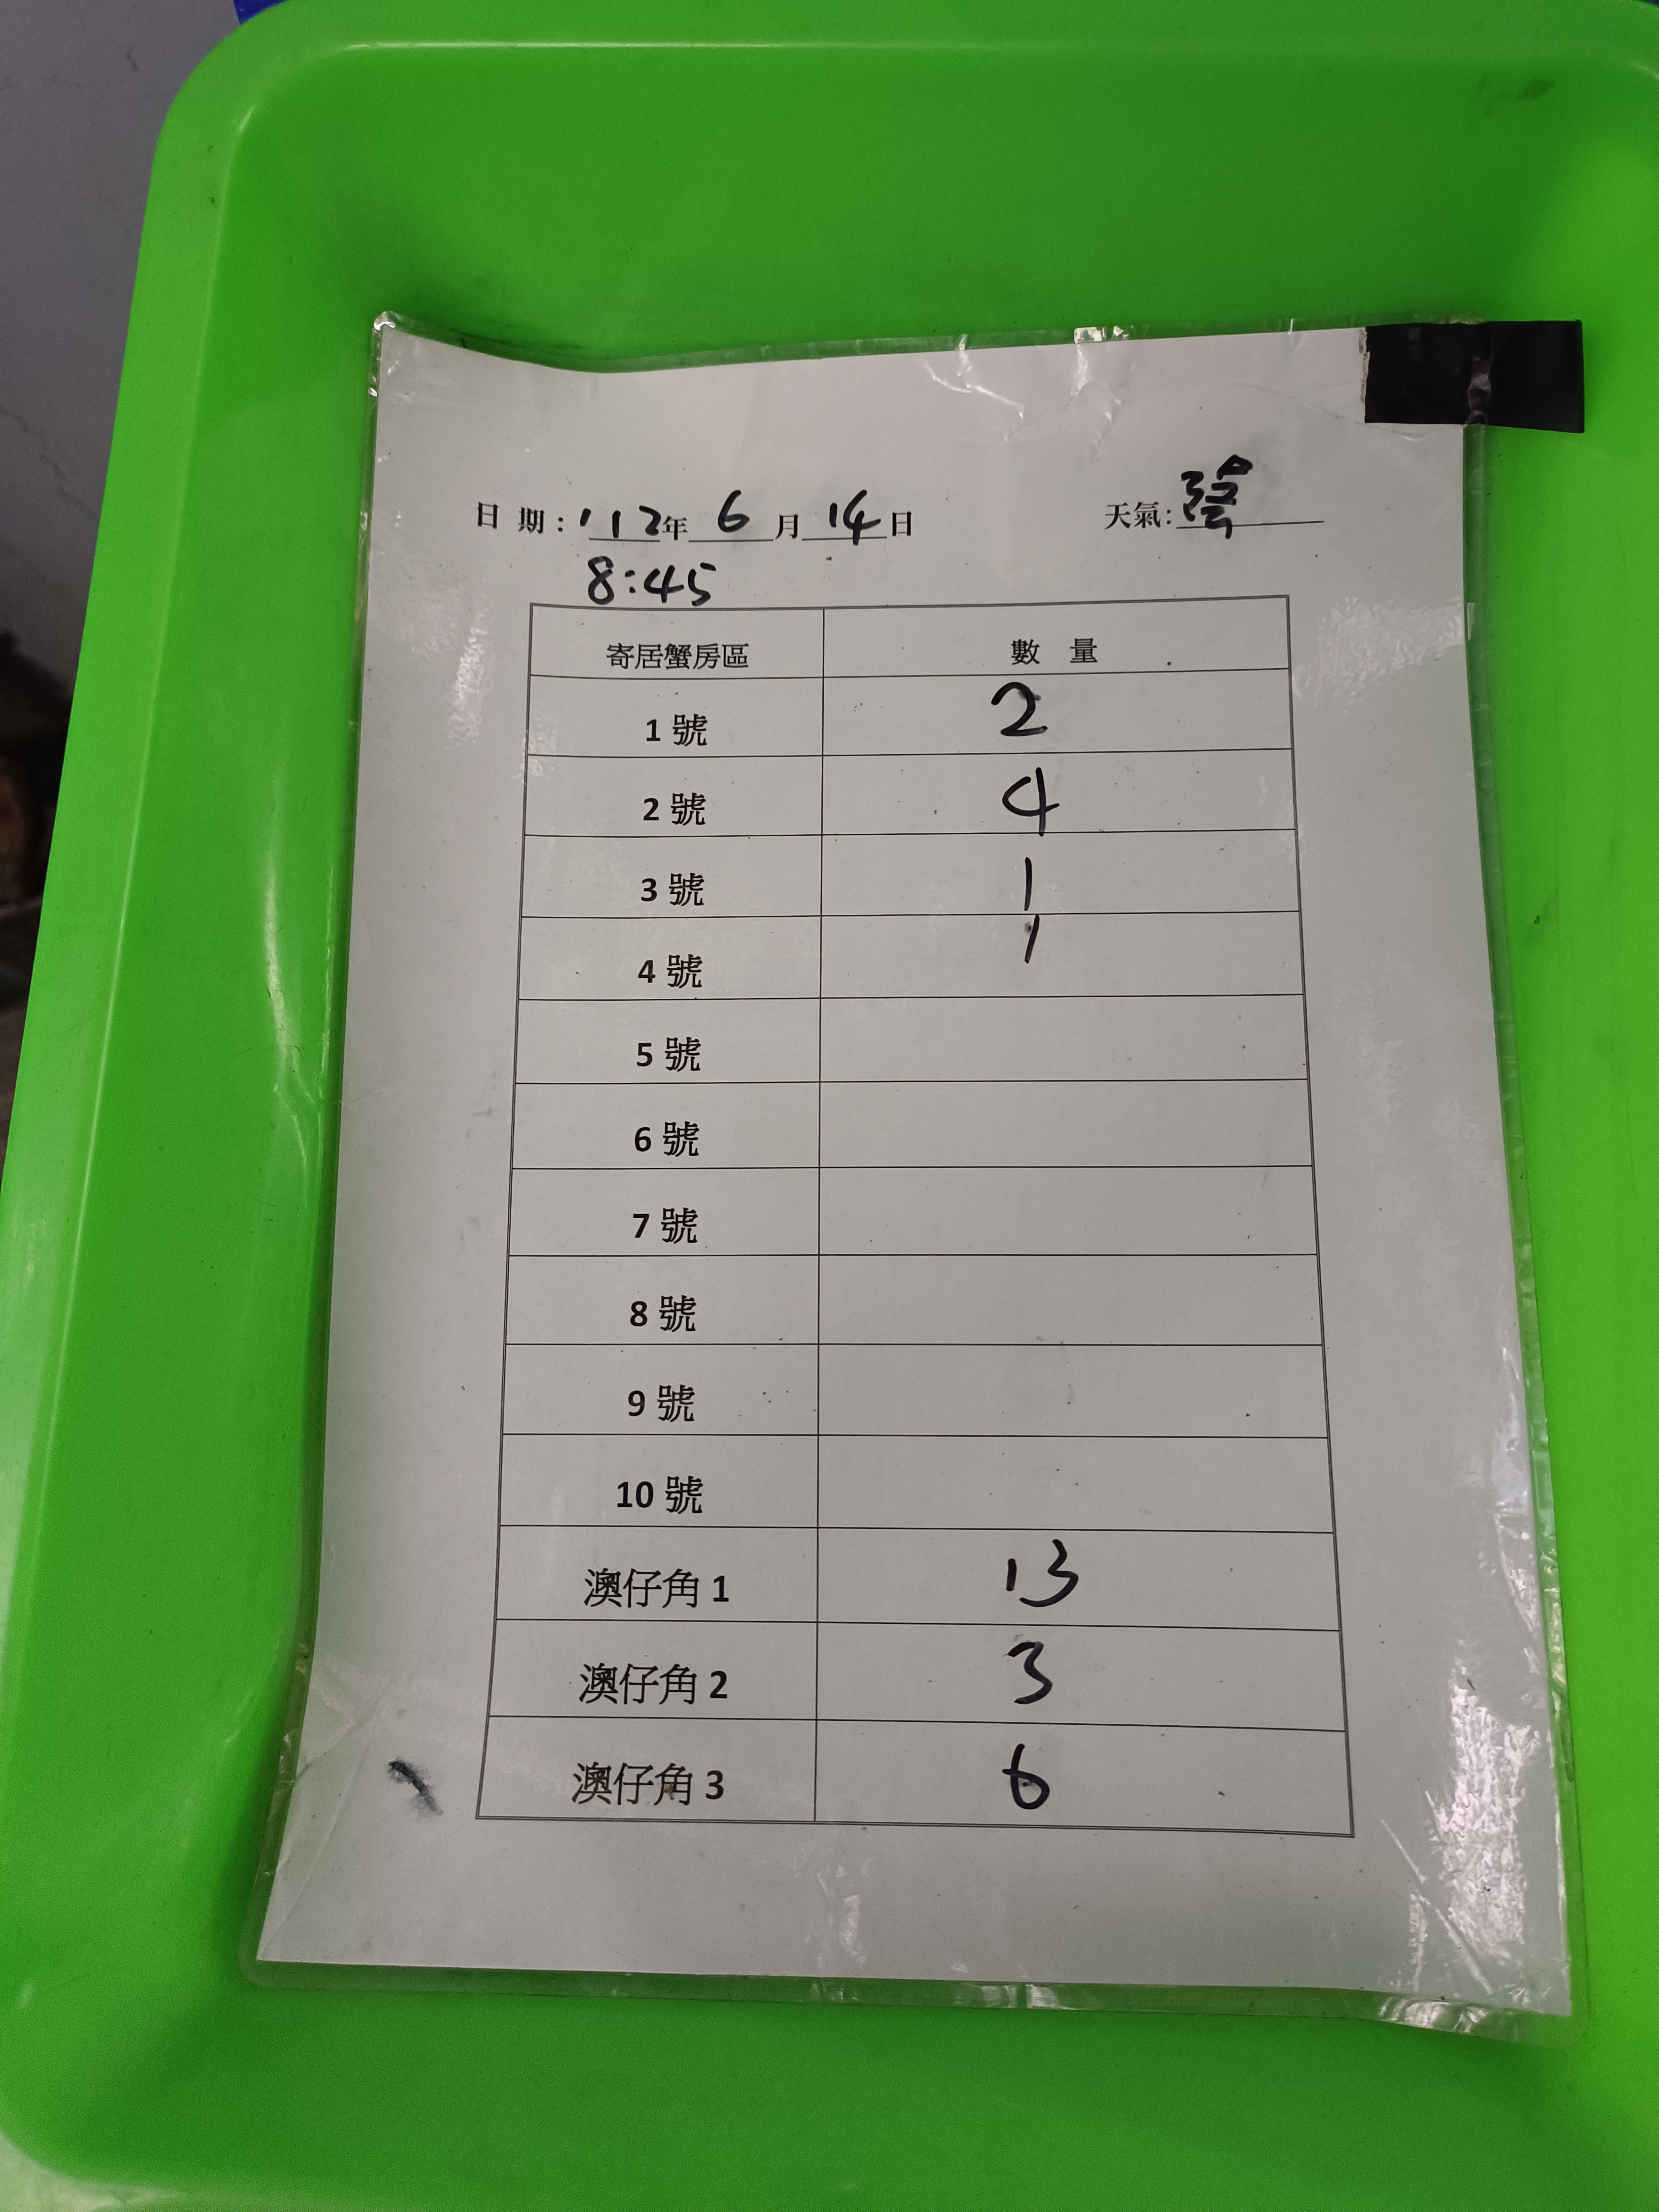 日 期: 112年 6 月 14 日 天氣: 陰
8:45
寄居蟹房區 數 量
1 號 2
2 號 4
3 號 1
4 號 1
5 號
6 號
7 號
8 號
9 號
10 號
澳仔角 1 13
澳仔角 2 3
澳仔角 3 6